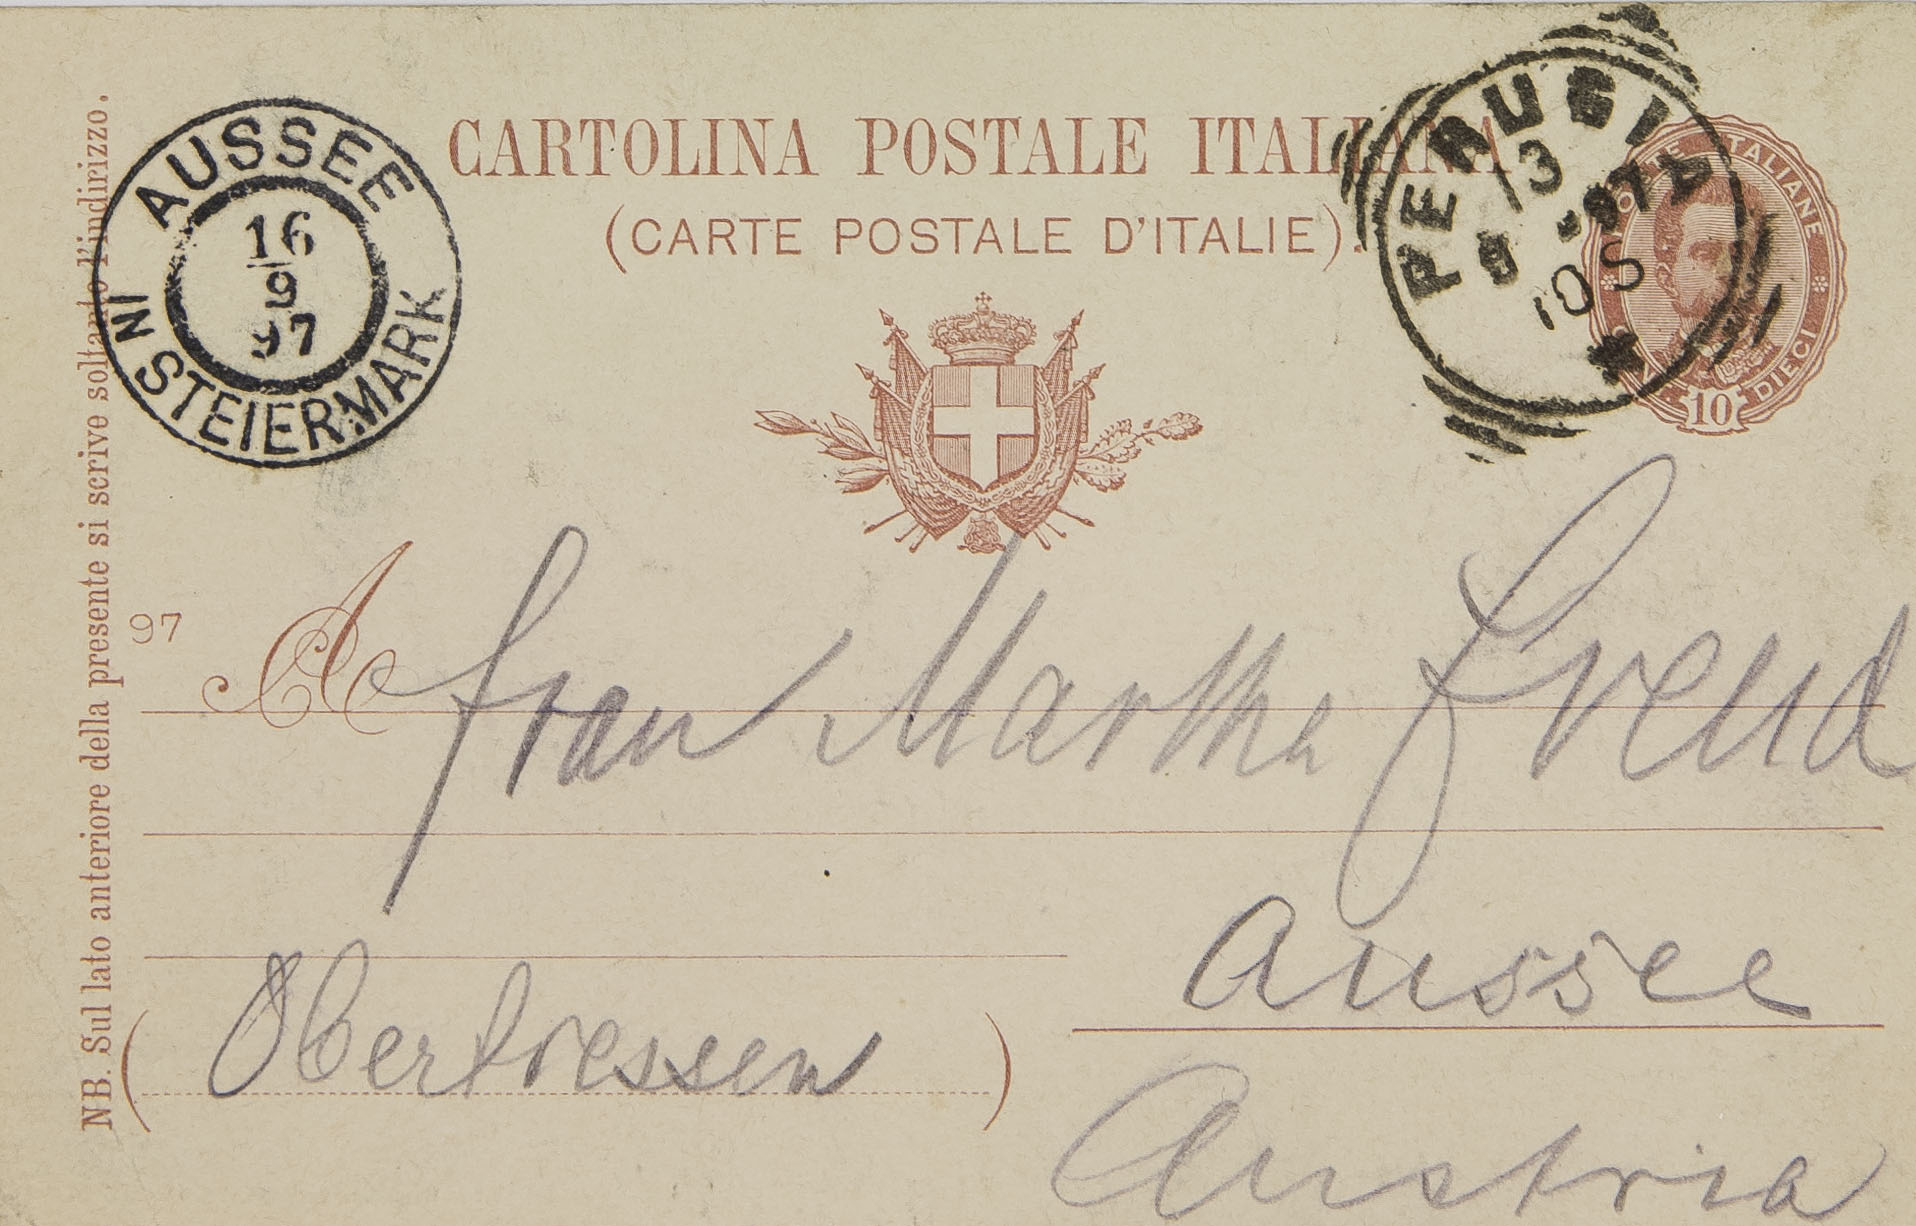 CARTOLINA POSTALE ITALIANA
(CARTE POSTALE D'ITALIE).
AUSSEE
16
9
97
IN STEIERMARK
PERUGIA
13
9 -97
10 S
POSTE ITALIANE
10
DIECI
NB. Sul lato anteriore della presente si scrive soltanto l'indirizzo.
97
A Frau Martha Freud
Aussee
(Obertressen)
Austria